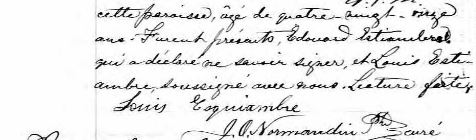 cette paroisse, âgé de quatre-vingt-onze
ans. Furent présents, Edouard Estiambre
qui a déclaré ne savoir signer, et Louis Esti-
ambre, soussigné avec nous. Lecture faite,
Louis Esquiambre
J. O. Normandin Ptre Curé